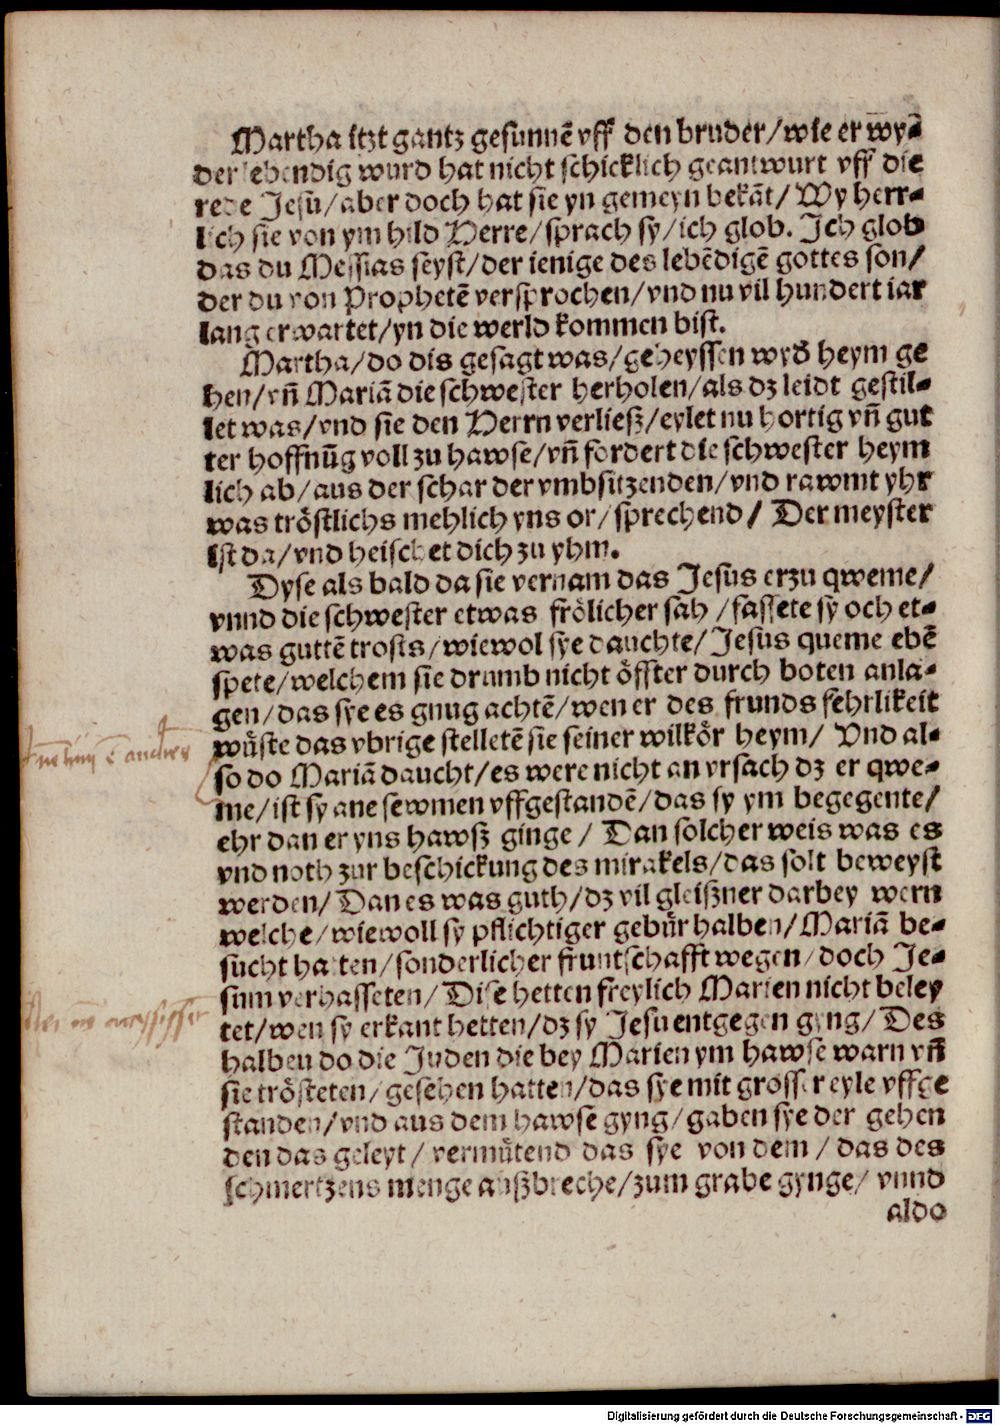 Martha itzt gantz gesunnē vff den bruder/wie er wy-
der lebendig wurd hat nicht schicklich geantwurt vff die
rede Jesū/aber doch hat sie yn gemeyn bekāt/ Wy herr-
lich sie von ym hild Herre/sprach sy/ich glob. Ich glob
das du Messias seyst/der ienige des lebēdigē gottes son/
der du von Prophetē versprochen/vnd nu vil hundert iar
lang erwartet/yn die werld kommen bist.
Martha/do dis gesagt was/geheyssen wyrd heym ge
hen/vn̄ Mariā die schwester herholen/als dz leidt gestil-
let was/vnd sie den Herrn verließ/eylet nu hortig vn̄ gut
ter hoffnūg voll zu hawse/vn̄ fordert die schwester heym
lich ab/aus der schar der vmbsitzenden/vnd rawmt yhr
was tröstlichs mehlich yns or/sprechend/ Der meyster
ist da/vnd heischet dich zu yhm.
Dyse als bald da sie vernam das Jesus erzu qweme/
vnnd die schwester etwas frölicher sah /fassete sy och et-
was guttē trosts/wiewol sye dauchte/Jesus queme ebē
spete/welchem sie drumb nicht öffter durch boten anla-
gen/das sye es gnug achtē/wen er des frunds fehrlikeit
wüste das vbrige stelletē sie seiner wilkör heym/ Vnd al-
so do Mariā daucht/es were nicht an vrsach dz er qwe-
me/ist sy ane sewmen vffgestandē/das sy ym begegente/
ehr dan er yns hawß ginge / Dan solcher weis was es
vnd noth zur beschickung des mirakels/das solt beweyst
werden/ Dan es was guth/dz vil gleißner darbey wern
welche/wiewoll sy pflichtiger gebür halben/Mariā be-
sucht hatten/sonderlicher fruntschafft wegen/doch Je-
sum verhasseten/ Dise hetten freylich Marien nicht beley
tet/wen sy erkant hetten/dz sy Jesu entgegen gyng/ Des
halben do die Juden die bey Marien ym hawse warn vn̄
sie trösteten/gesehen hatten/das sye mit grosser eyle vffge
standen/vnd aus dem hawse gyng/gaben sye der gehen
den das geleyt/ vermütend das sye von dem / das des
schmertzens menge außbreche/zum grabe gynge/ vnnd
aldo
Digitalisierung gefördert durch die Deutsche Forschungsgemeinschaft - DFG